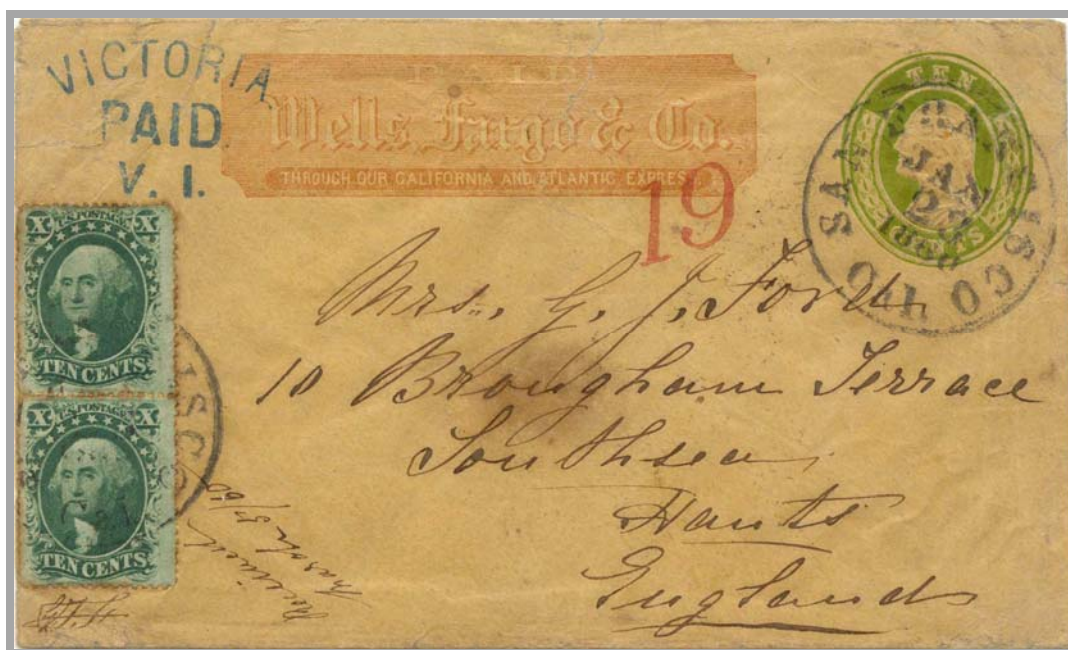 VICTORIA
PAID
V. I.
PAID
Wells Fargo & Co.
THROUGH OUR CALIFORNIA AND ATLANTIC EXPRESS
TEN
CENTS
SAN FRANCISCO
JAN
19
U.S. POSTAGE
X X
TEN CENTS
U.S. POSTAGE
X X
TEN CENTS
Mrs. G. J. Ford
10 Brougham Terrace
Southsea
Hants
England
Received
March 5/60